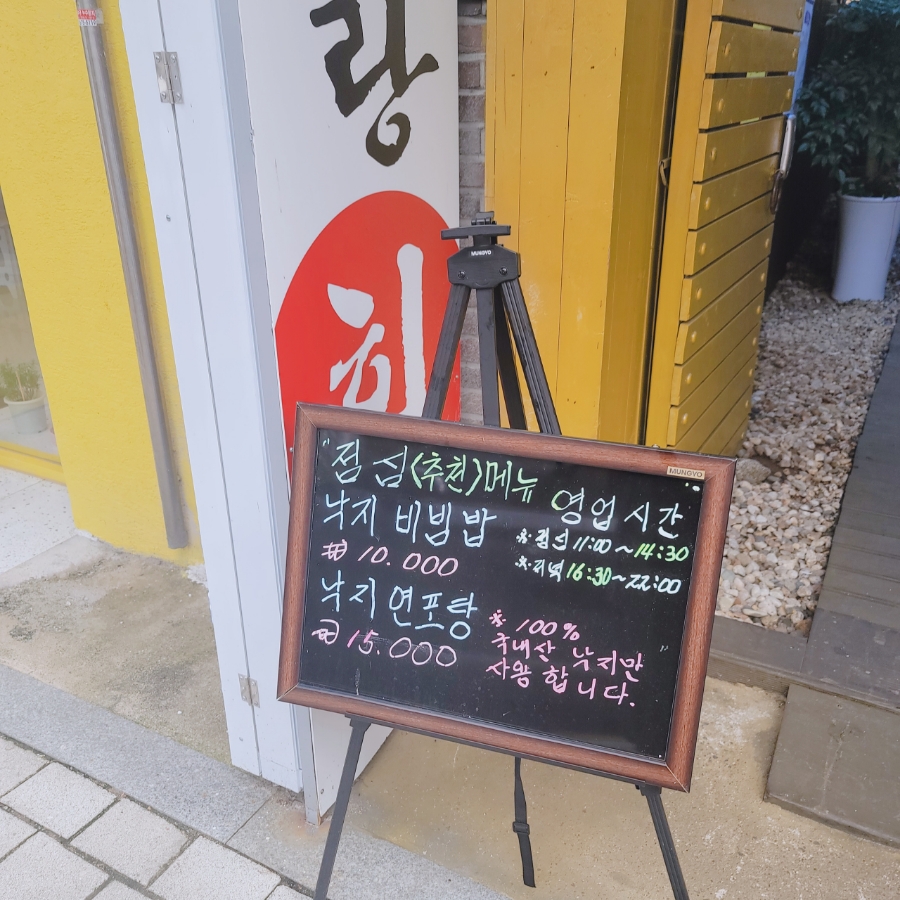 랑
회
MUNGYO
MUNGYO
"점심<추천>메뉴
낙지 비빔밥
₩ 10.000
낙지연포탕
₩ 15.000
영업 시간
※점심 11:00 ~ 14:30
※저녁 16:30 ~ 22:00
※ 100%
국내산 낙지만 "
사용합니다.